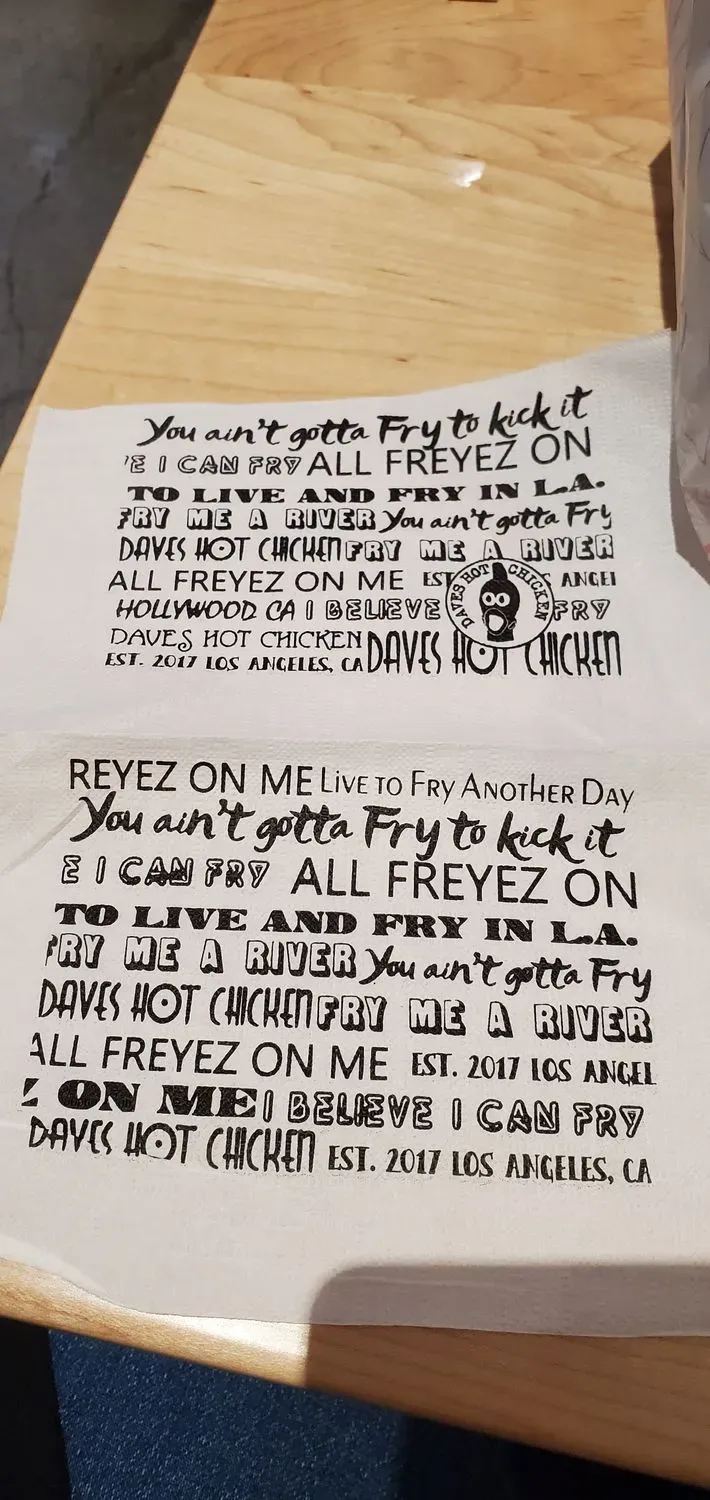 You ain't gotta Fry to kick it
'E I CAN FRY ALL FREYEZ ON
TO LIVE AND FRY IN L.A.
FRY ME A RIVER You ain't gotta Fry
DAVES HOT CHICKEN FRY ME A RIVER
ALL FREYEZ ON ME EST ANGEL
HOLLYWOOD CA I BELIEVE FRY
DAVES HOT CHICKEN
DAVES HOT CHICKEN
EST. 2017 LOS ANGELES, CA DAVES HOT CHICKEN
REYEZ ON ME LIVE TO FRY ANOTHER DAY
You ain't gotta Fry to kick it
E I CAN FRY ALL FREYEZ ON
TO LIVE AND FRY IN L.A.
FRY ME A RIVER You ain't gotta Fry
DAVES HOT CHICKEN FRY ME A RIVER
ALL FREYEZ ON ME EST. 2017 LOS ANGEL
Z ON ME I BELIEVE I CAN FRY
DAVES HOT CHICKEN EST. 2017 LOS ANGELES, CA